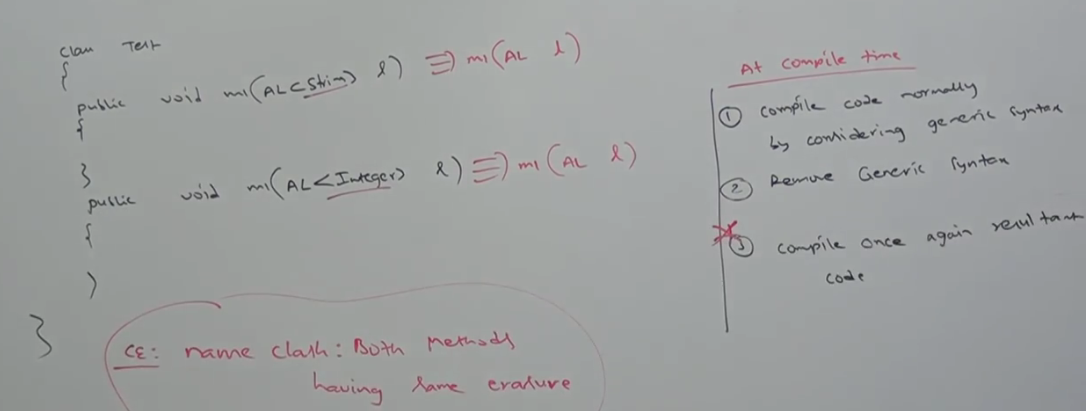 class Test
{
public void m1(AL<String> l) ≡> m1(AL l)
{
}
public void m1(AL<Integer> l) ≡> m1(AL l)
{
}
}
CE: name clash: Both methods
having same erasure
At compile time
① compile code normally
by considering generic syntax
② Remove Generic Syntax
③ compile once again resultant
code